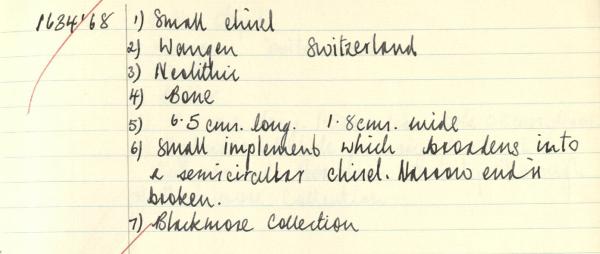 1634/68 1) Small chisel
2) Wangen Switzerland
3) Neolithic
4) Bone
5) 6.5 cms. long. 1.8 cms. wide
6) Small implement which broadens into
a semicircular chisel. Narrow end is
broken.
7) Blackmore Collection